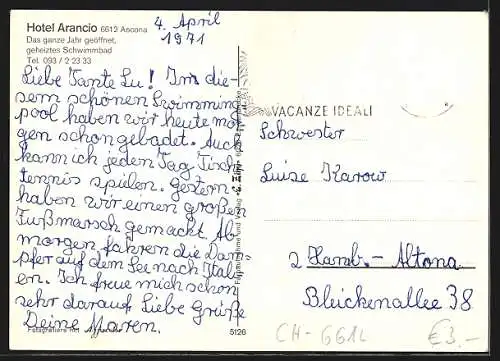 Hotel Arancio 6612 Ascona
Das ganze Jahr geöffnet,
geheiztes Schwimmbad
Tel. 093 / 2 23 33
4. April
1971
Liebe Tante Lu! Im die-
sem schönen Swimming
pool haben wir heute mor
gen schon gebadet. Auch
kann ich jeden Tag Tisch
tennis spielen. Gestern
haben wir einen großen
Fußmarsch gemacht. Ab
morgen fahren die Dam-
pfer auf dem See nach Itali
en. Ich freue mich schon
sehr darauf Liebe Grüße
Deine Maren.
5126
VACANZE IDEALI
Schwester
Luise Karow
2 Hamb.- Altona
Bleickenallee 38
CH-6612
€3.-